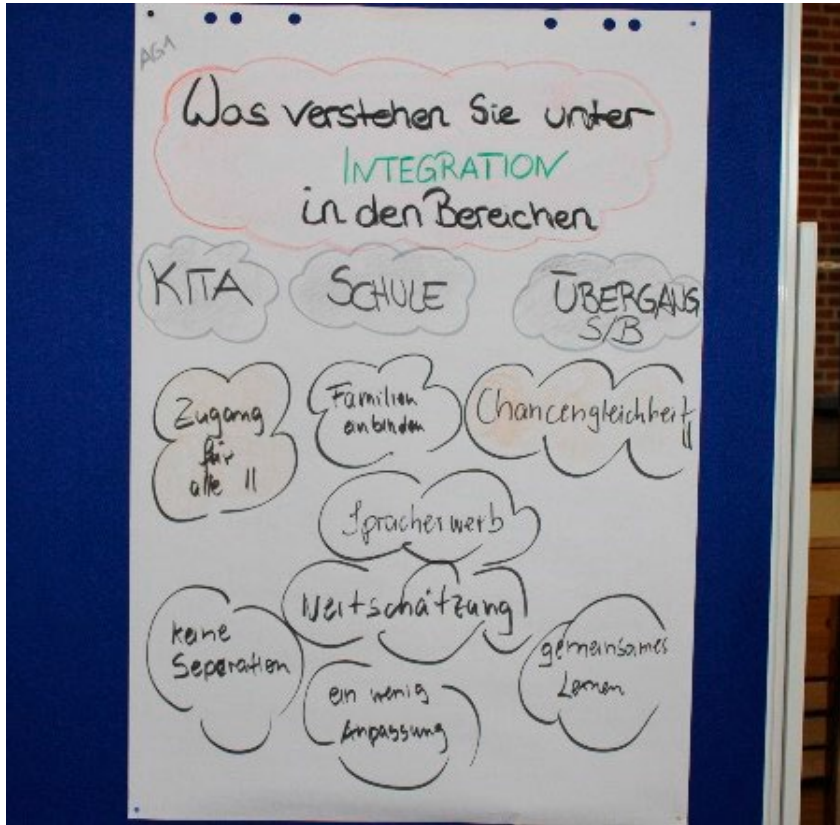 AG1
Was verstehen Sie unter
INTEGRATION
in den Bereichen
KITA
SCHULE
ÜBERGANG
S/B
Zugang
für
alle !!
Familien
einbinden
Chancengleichheit !!
Spracherwerb
Wertschätzung
keine
Separation
gemeinsames
Lernen
ein wenig
Anpassung